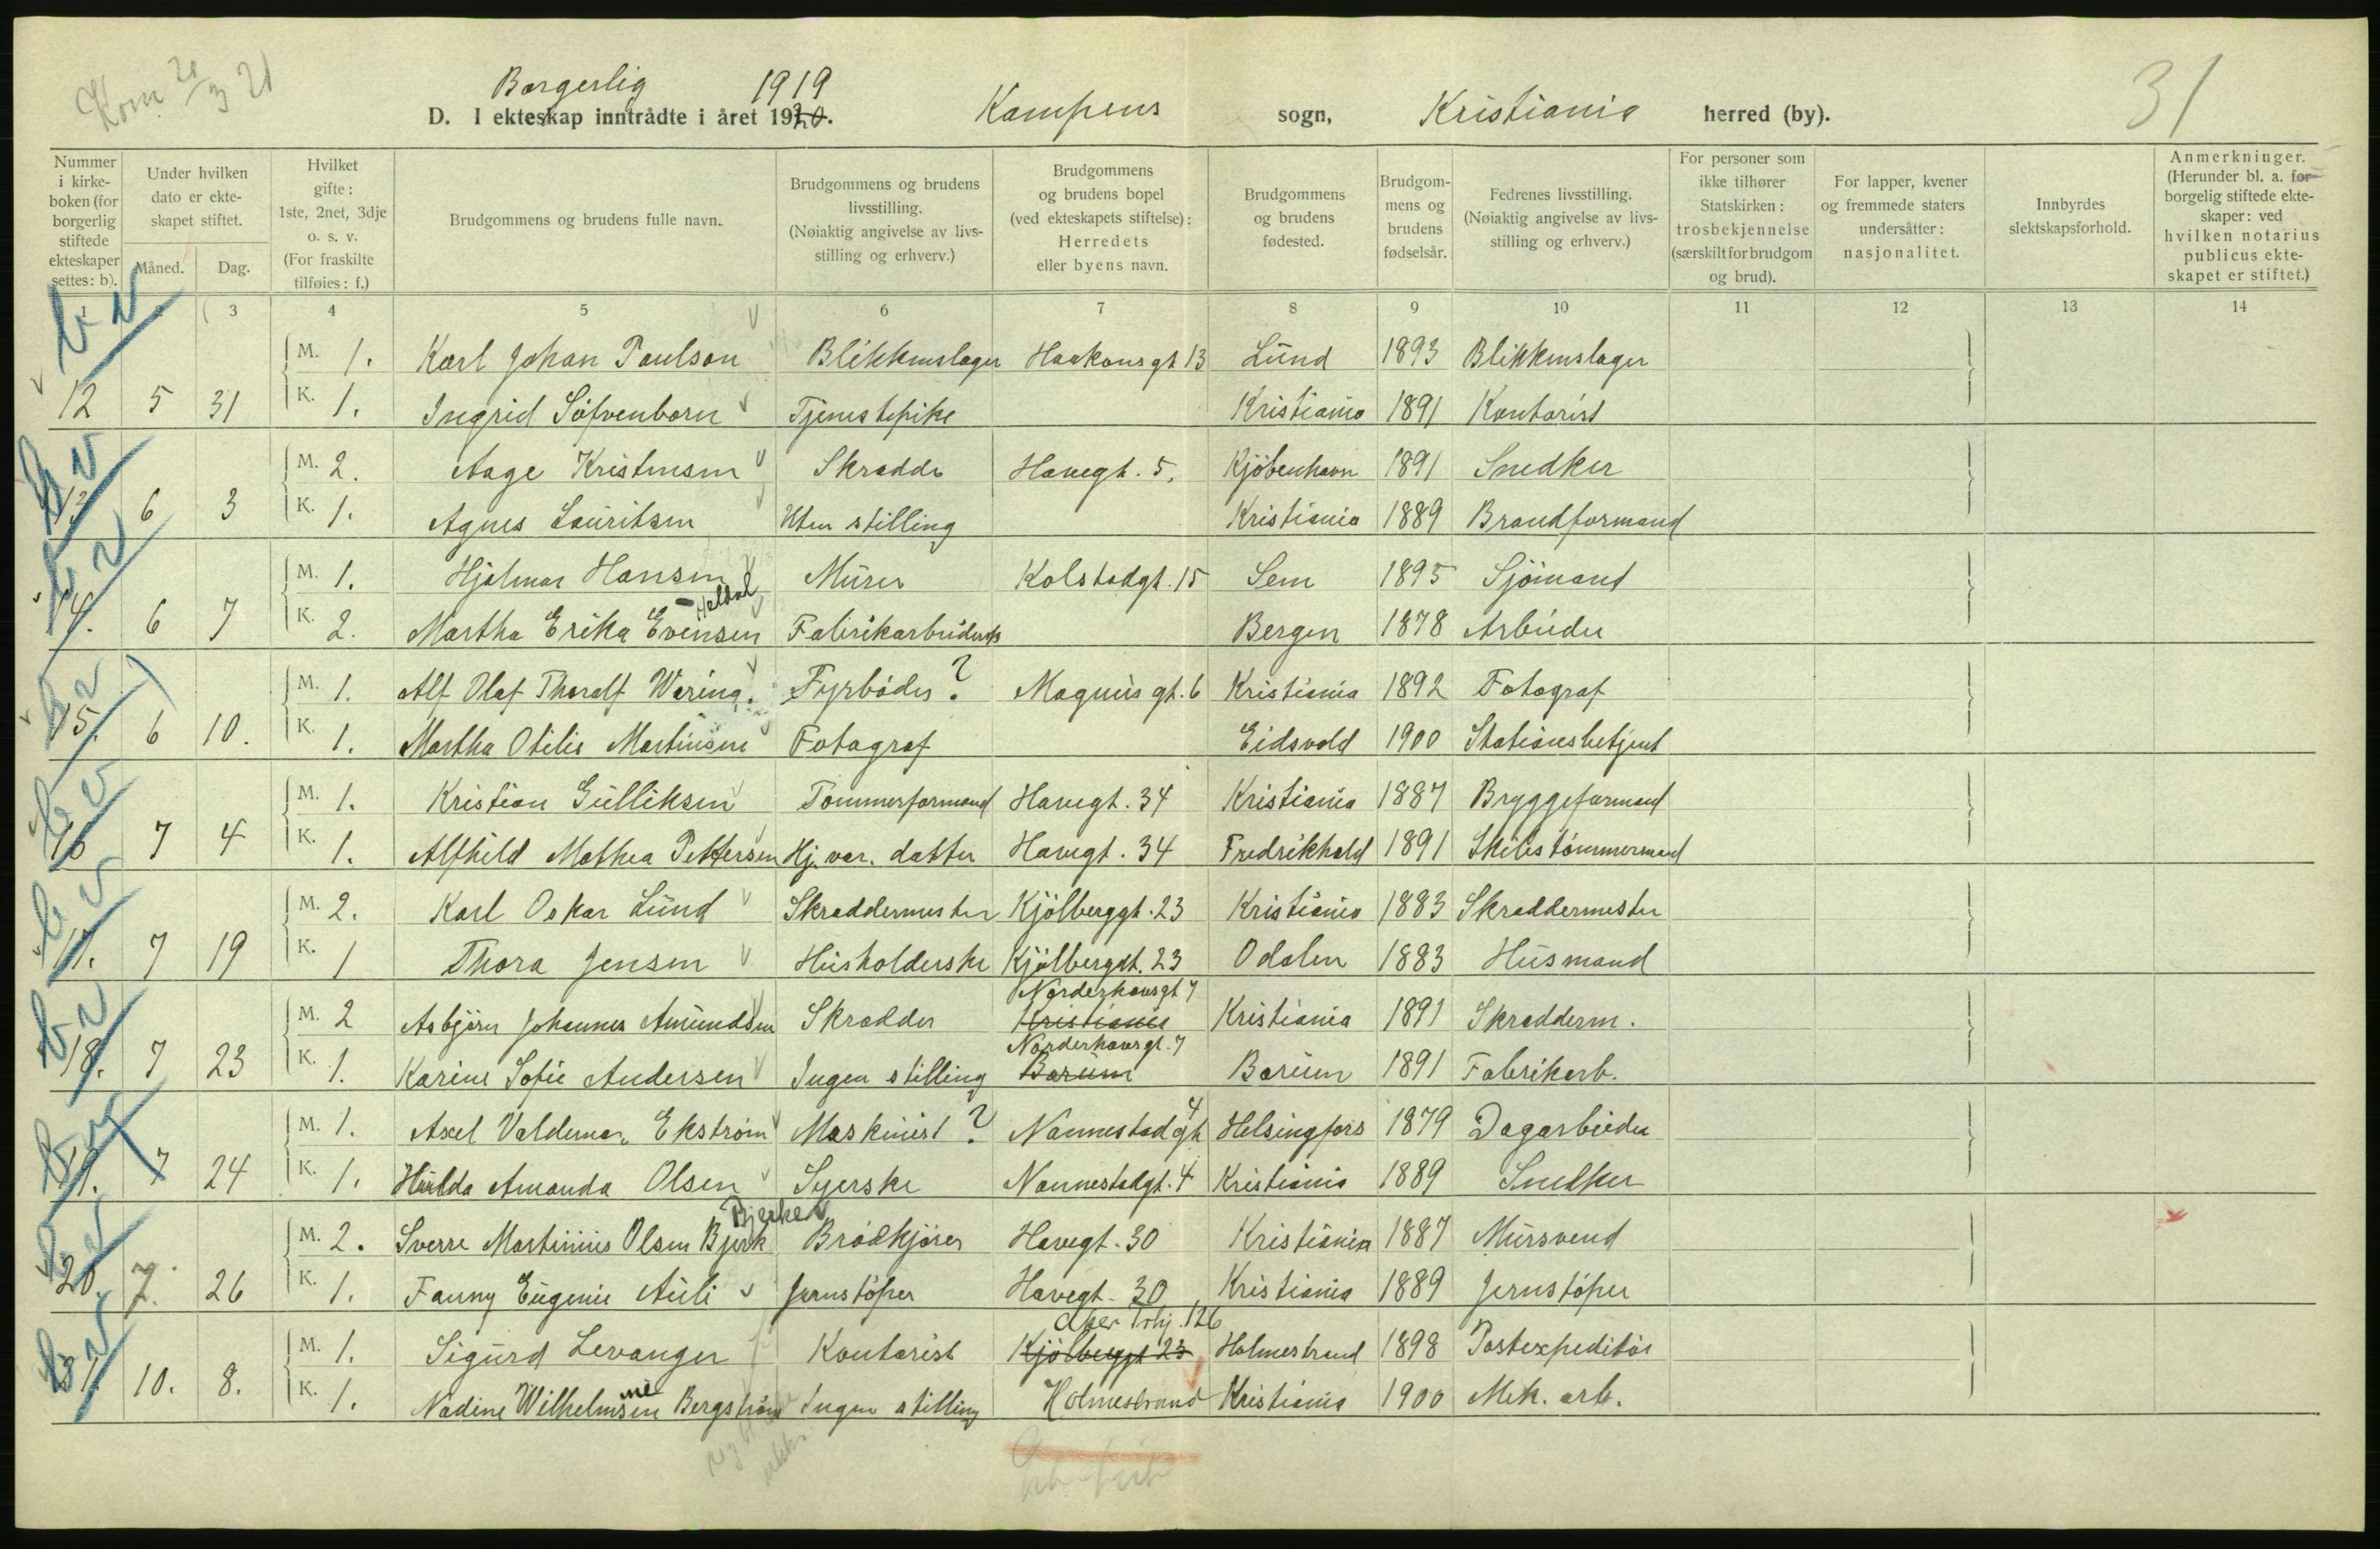 Kom 21/3 21
Borgerlig 1919
D. I ekteskap inntrådte i året 1920. Kampens sogn, Kristiania herred (by).
31
Nummer i kirkeboken (for borgerlig stiftede ekteskaper settes: b).
Under hvilken dato er ekteskapet stiftet.
Måned. Dag.
Hvilket gifte: 1ste, 2net, 3dje o. s. v. (For fraskilte tilføies: f.)
Brudgommens og brudens fulle navn.
Brudgommens og brudens livsstilling. (Nøiaktig angivelse av livsstilling og erhverv.)
Brudgommens og brudens bopel (ved ekteskapets stiftelse): Herredets eller byens navn.
Brudgommens og brudens fødested.
Brudgommens og brudens fødselsår.
Fedrenes livsstilling. (Nøiaktig angivelse av livsstilling og erhverv.)
For personer som ikke tilhører Statskirken: trosbekjennelse (særskilt for brudgom og brud).
For lapper, kvener og fremmede staters undersåtter: nasjonalitet.
Innbyrdes slektskapsforhold.
Anmerkninger. (Herunder bl. a. for borgelig stiftede ekteskaper: ved hvilken notarius publicus ekteskapet er stiftet.)
1 2 3 4 5 6 7 8 9 10 11 12 13 14
M. 1. Karl Johan Paulson Blikkenslager Haakonsgt 13 Lund 1893 Blikkenslager
12 5 31 K. 1. Ingrid Söfvenborn Tjenestepike Kristiania 1891 Kontorist
M. 2. Aage Kristensen Skrædder Havegt. 5. Kjöbenhavn 1891 Snedker
13 6 3 K. 1. Agnes Lauritsen Uten stilling Kristiania 1889 Brandformand
M. 1. Hjalmar Hansen Murer Kolstadgt. 15 Sem 1895 Sjömand
14. 6 7 K. 2. Martha Erika Evensen - Heldal Fabrikarbeiderske Bergen 1878 Arbeider
M. 1. Alf Olaf Thoralf Wæring. Fyrböder ? Magnusgt. 6 Kristiania 1892 Fotograf
15. 6 10. K. 1. Martha Otilie Martinsen Fotograf Eidsvold 1900 Stationsbetjent
M. 1. Kristian Gulliksen Tommerformand Havegt. 34 Kristiania 1887 Bryggeformand
16 7 4 K. 1. Alfhild Mathea Pettersen Hj. vær. datter Havegt. 34 Fredrikhald 1891 Skibstömmermand
M. 2. Karl Oskar Lund Skræddermester Kjölberggt. 23 Kristiania 1883 Skræddermester
17. 7 19 K. 1 Thora Jensen Husholderske Kjölberggt. 23 Odalen 1883 Husmand
Norderhovsgt 7
M. 2 Asbjörn Johannes Amundsen Skrædder Kristiania Kristiania 1891 Skrædderm.
Norderhovsgt. 7
18. 7 23 K. 1. Karine Sofie Andersen Ingen stilling Bærum Bærum 1891 Fabrikarb.
M. 1. Axel Valdemar Ekström Maskinist ? Nannestadgt 4 Helsingfors 1879 Dagarbeider
19. 7 24 K. 1. Hulda Amanda Olsen Syerske Nannestadgt. 4 Kristiania 1889 Snedker
Bjerke
M. 2. Sverre Martinius Olsen Bjerk Brödkjörer Havegt. 30 Kristiania 1887 Mursvend
20. 7. 26 K. 1. Fanny Eugenie Auli Jernstöper Havegt. 30 Kristiania 1889 Jernstöper
Aker Trhj. 126
M. 1. Sigurd Levanger Kontorist Kjölberggt 23 Holmestrand 1898 Postexpeditör
21. 10. 8. K. 1. Nadine Wilhelmine Bergström Ingen stilling Holmestrand Kristiania 1900 Mek. arb.